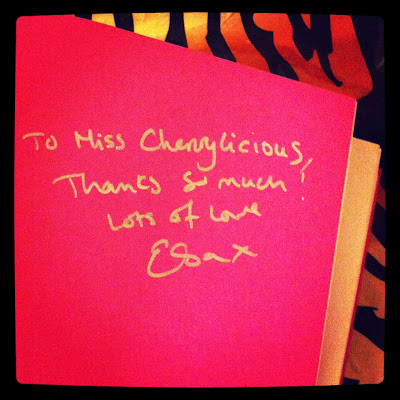 To Miss Cherrylicious,
Thanks so much!
Lots of love
Elsa x